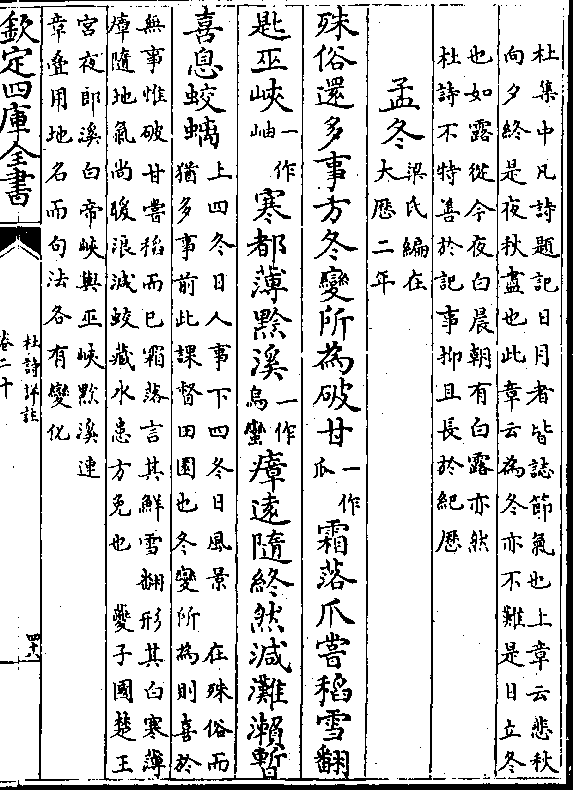 杜集中凡詩題記日月者皆誌節氣也上章云悲秋
向夕終是夜秋盡也此章云為冬亦不難是日立冬
也如露從今夜白晨朝有白露亦然
杜詩不特善於記事抑且長於紀歷
孟冬 梁氏編在
大歷二年
殊俗還多事方冬變所為破甘一作瓜霜落爪嘗稻雪翻
匙巫峽一作岫寒都薄黔溪一作烏蠻瘴遠隨終然減灘瀨暫
喜息蛟螭 上四冬日人事下四冬日風景 在殊俗而
猶多事前此課督田園也冬變所為則喜於
無事惟破甘嘗稻而已霜落言其鮮雪翻形其白寒薄
瘴隨地氣尚暖浪減蛟藏水患方免也 夔子國楚王
宮夜郎溪白帝峽與巫峽黔溪連
章疊用地名而句法各有變化
欽定四庫全書
杜詩詳註
卷二十
四十八